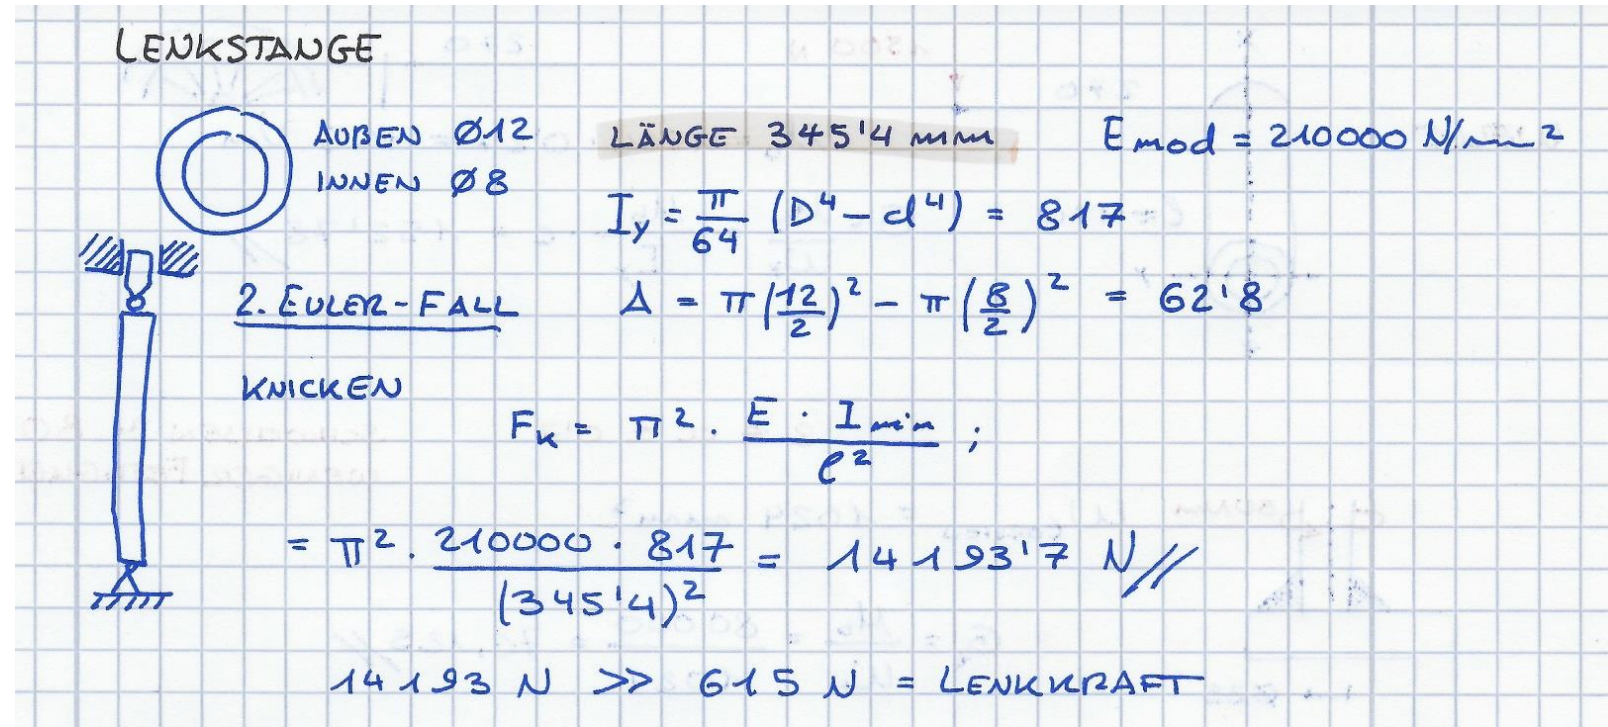 LENKSTANGE
AUßEN Ø12
INNEN Ø8
LÄNGE 345'4 mm
Emod = 210000 N/mm²
Iy = π/64 (D⁴ - d⁴) = 817
2. EULER-FALL
A = π(12/2)² - π(8/2)² = 62'8
KNICKEN
FK = π² · E · Imin / ℓ² ;
= π² · 210000 · 817 / (345'4)² = 14193'7 N //
14193 N >> 615 N = LENKKRAFT